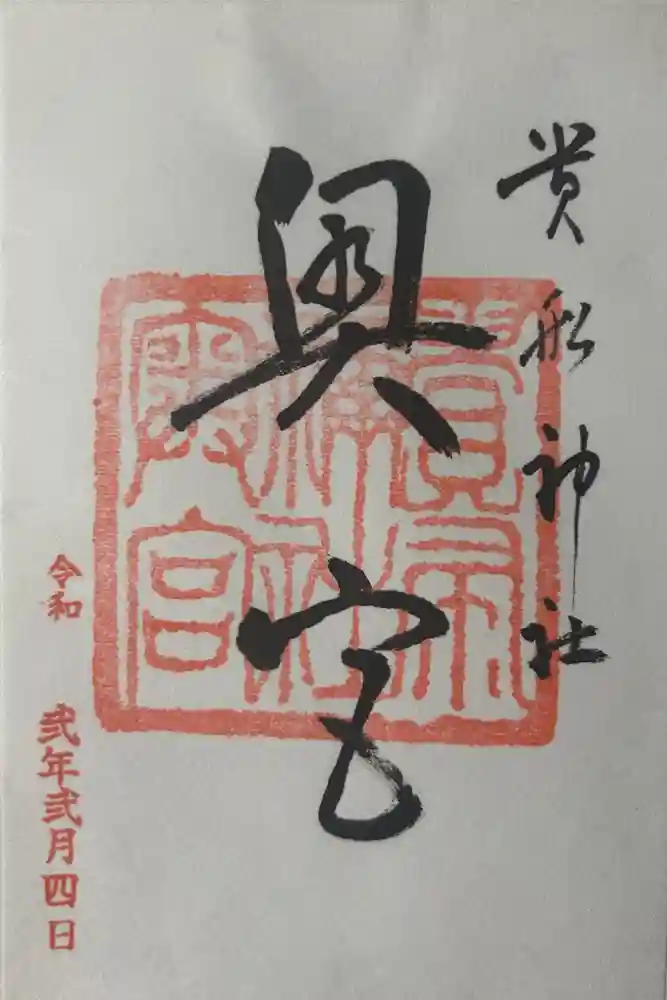 貴船神社
奥宮
貴布
禰社
奥宮
令和 弐年弐月四日